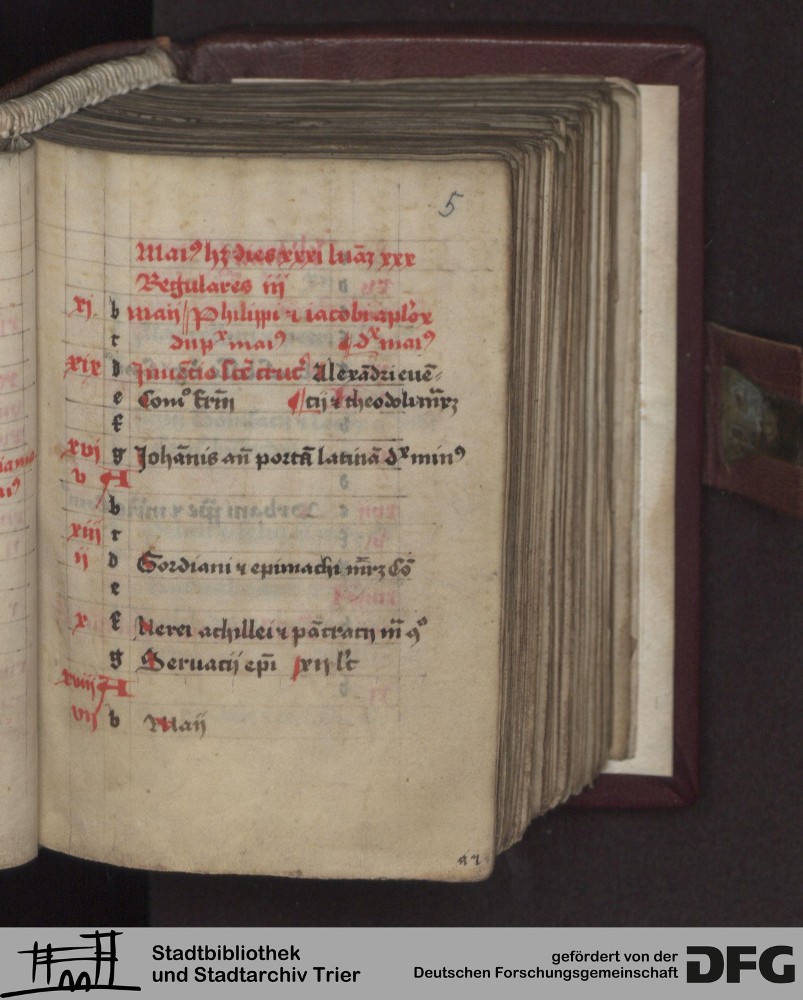 5
Maiꝰ hꝫ dies xxxi luãꝫ xxx
Regulares iij
xi b maij Philippi ⁊ iacobi aploꝝ
c dupˣ maiꝰ dˣ maiꝰ
xix d Inuẽcio scẽ crucꝰ Alexãdri euẽ-
e Com̊ tcij ⁊ theodoli mr̃ꝫ
f
xvi g Johãnis añ portã latinã dˣ minꝰ
v A
b
xiii c
ii d Gordiani ⁊ epimachi mr̃ꝫ Cõ
e
x f Nerei achillei ⁊ pãcracij m̃
g Seruacij ep̃i xij lc̃
xviij A
vij b Maij
Stadtbibliothek
und Stadtarchiv Trier
gefördert von der
Deutschen Forschungsgemeinschaft
DFG